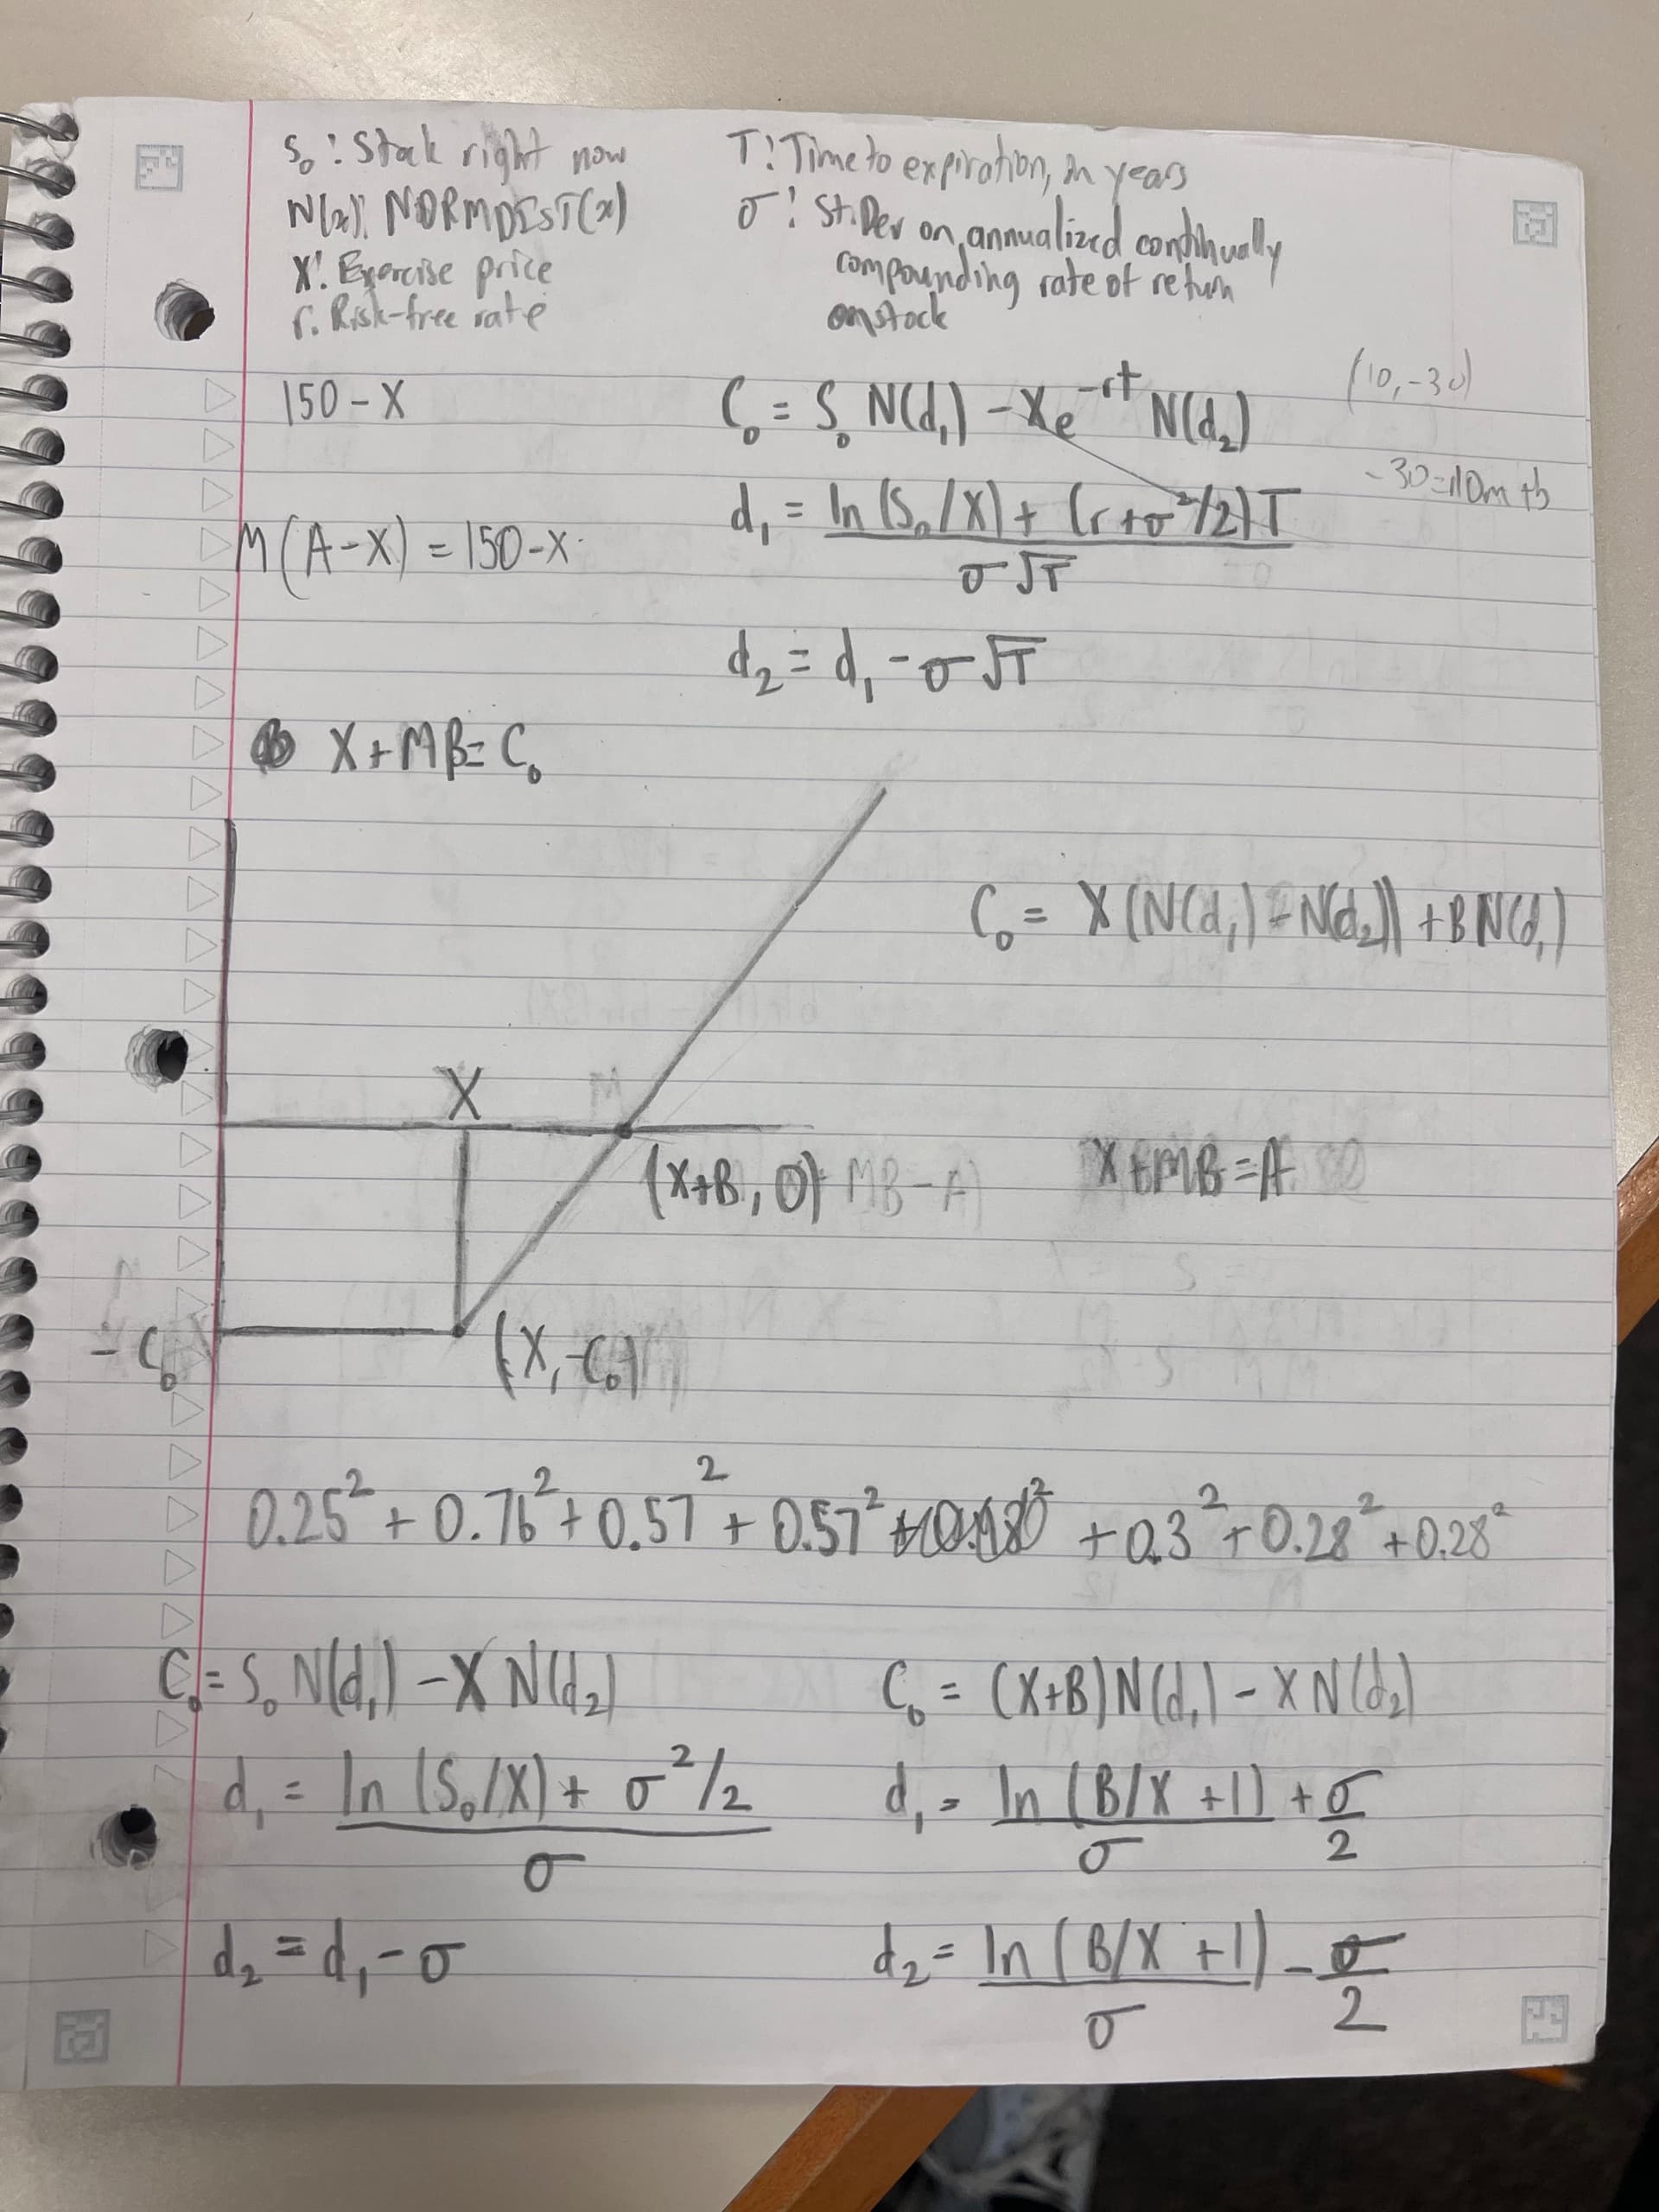 S₀: Stock right now
N(x): NORMDIST(x)
X: Exercise price
r: Risk-free rate
T: Time to expiration, in years
σ: St. Dev on annualized continually
compounding rate of return
on stock
150 - X
C₀ = S₀ N(d₁) - Xe^(-rt) N(d₂)
(10, -30)
-30 = 10m + b
d₁ = (ln (S₀/X) + (r + σ²/2)T) / (σ√T)
M(A - X) = 150 - X
d₂ = d₁ - σ√T
X + MB = C₀
C₀ = X (N(d₁) - N(d₂)) + B N(d₁)
X
M
(X+B, 0) MB - A)
X + MB = A
-C₀
(X, -C₀)
0.25² + 0.76² + 0.57² + 0.57² + 0.3² + 0.28² + 0.28²
C₀ = S₀ N(d₁) - X N(d₂)
C₀ = (X+B) N(d₁) - X N(d₂)
d₁ = (ln (S₀/X) + σ²/2) / σ
d₁ = ln (B/X + 1) / σ + σ/2
d₂ = d₁ - σ
d₂ = ln (B/X + 1) / σ - σ/2